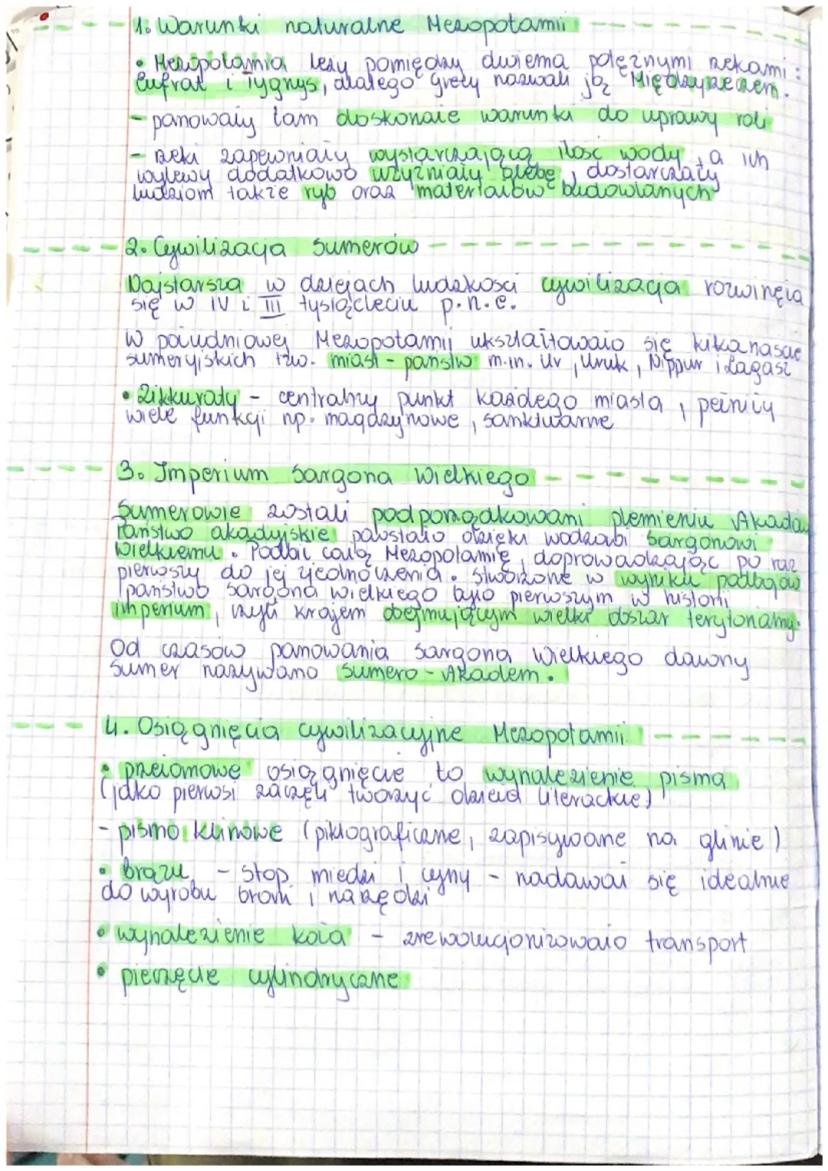 1. Warunki naturalne Mezopotamii
• Mezopotamia leży pomiędzy dwiema potężnymi rzekami:
Eufrat i Tygrys, dlatego grecy nazwali ją Międzyrzeczem.
- panowały tam doskonałe warunki do uprawy roli
- rzeki zapewniały wystarczającą ilość wody, a ich
wylewy dodatkowo użyźniały glebę, dostarczały
ludziom także ryb oraz materiałów budowlanych
2. Cywilizacja Sumerów
Najstarsza w dziejach ludzkości cywilizacja rozwinęła
się w IV i III tysiącleciu p.n.e.
W południowej Mezopotamii ukształtowało się kikanaście
sumeryjskich tzw. miast-państw m.in. Ur, Uruk, Nippur i Lagasz
• Zikkuraty - centralny punkt każdego miasta, pełniły
wiele funkcji np. magazynowe, sanktuarne
3. Imperium Sargona Wielkiego
Sumerowie zostali podporządkowani plemieniu Akadów
Państwo akadyjskie powstało dzięki wodzowi Sargonowi
Wielkiemu. Podbił całą Mezopotamię, doprowadzając po raz
pierwszy do jej zjednoczenia. Stworzone w wyniku podbojów
państwo Sargona Wielkiego było pierwszym w historii
imperium, czyli krajem obejmującym wielki obszar terytorialny.
Od czasów panowania Sargona Wielkiego dawny
Sumer nazywano Sumero-Akadem.
4. Osiągnięcia cywilizacyjne Mezopotamii
• przełomowe osiągnięcie to wynalezienie pisma
(jako pierwsi zaczęli tworzyć dzieła literackie)
- pismo klinowe (piktograficzne, zapisywane na glinie)
• brązu - stop miedzi i cyny - nadawał się idealnie
do wyrobu broni i narzędzi
• wynalezienie koła - zrewolucjonizowało transport
• pieczęcie cylindryczne